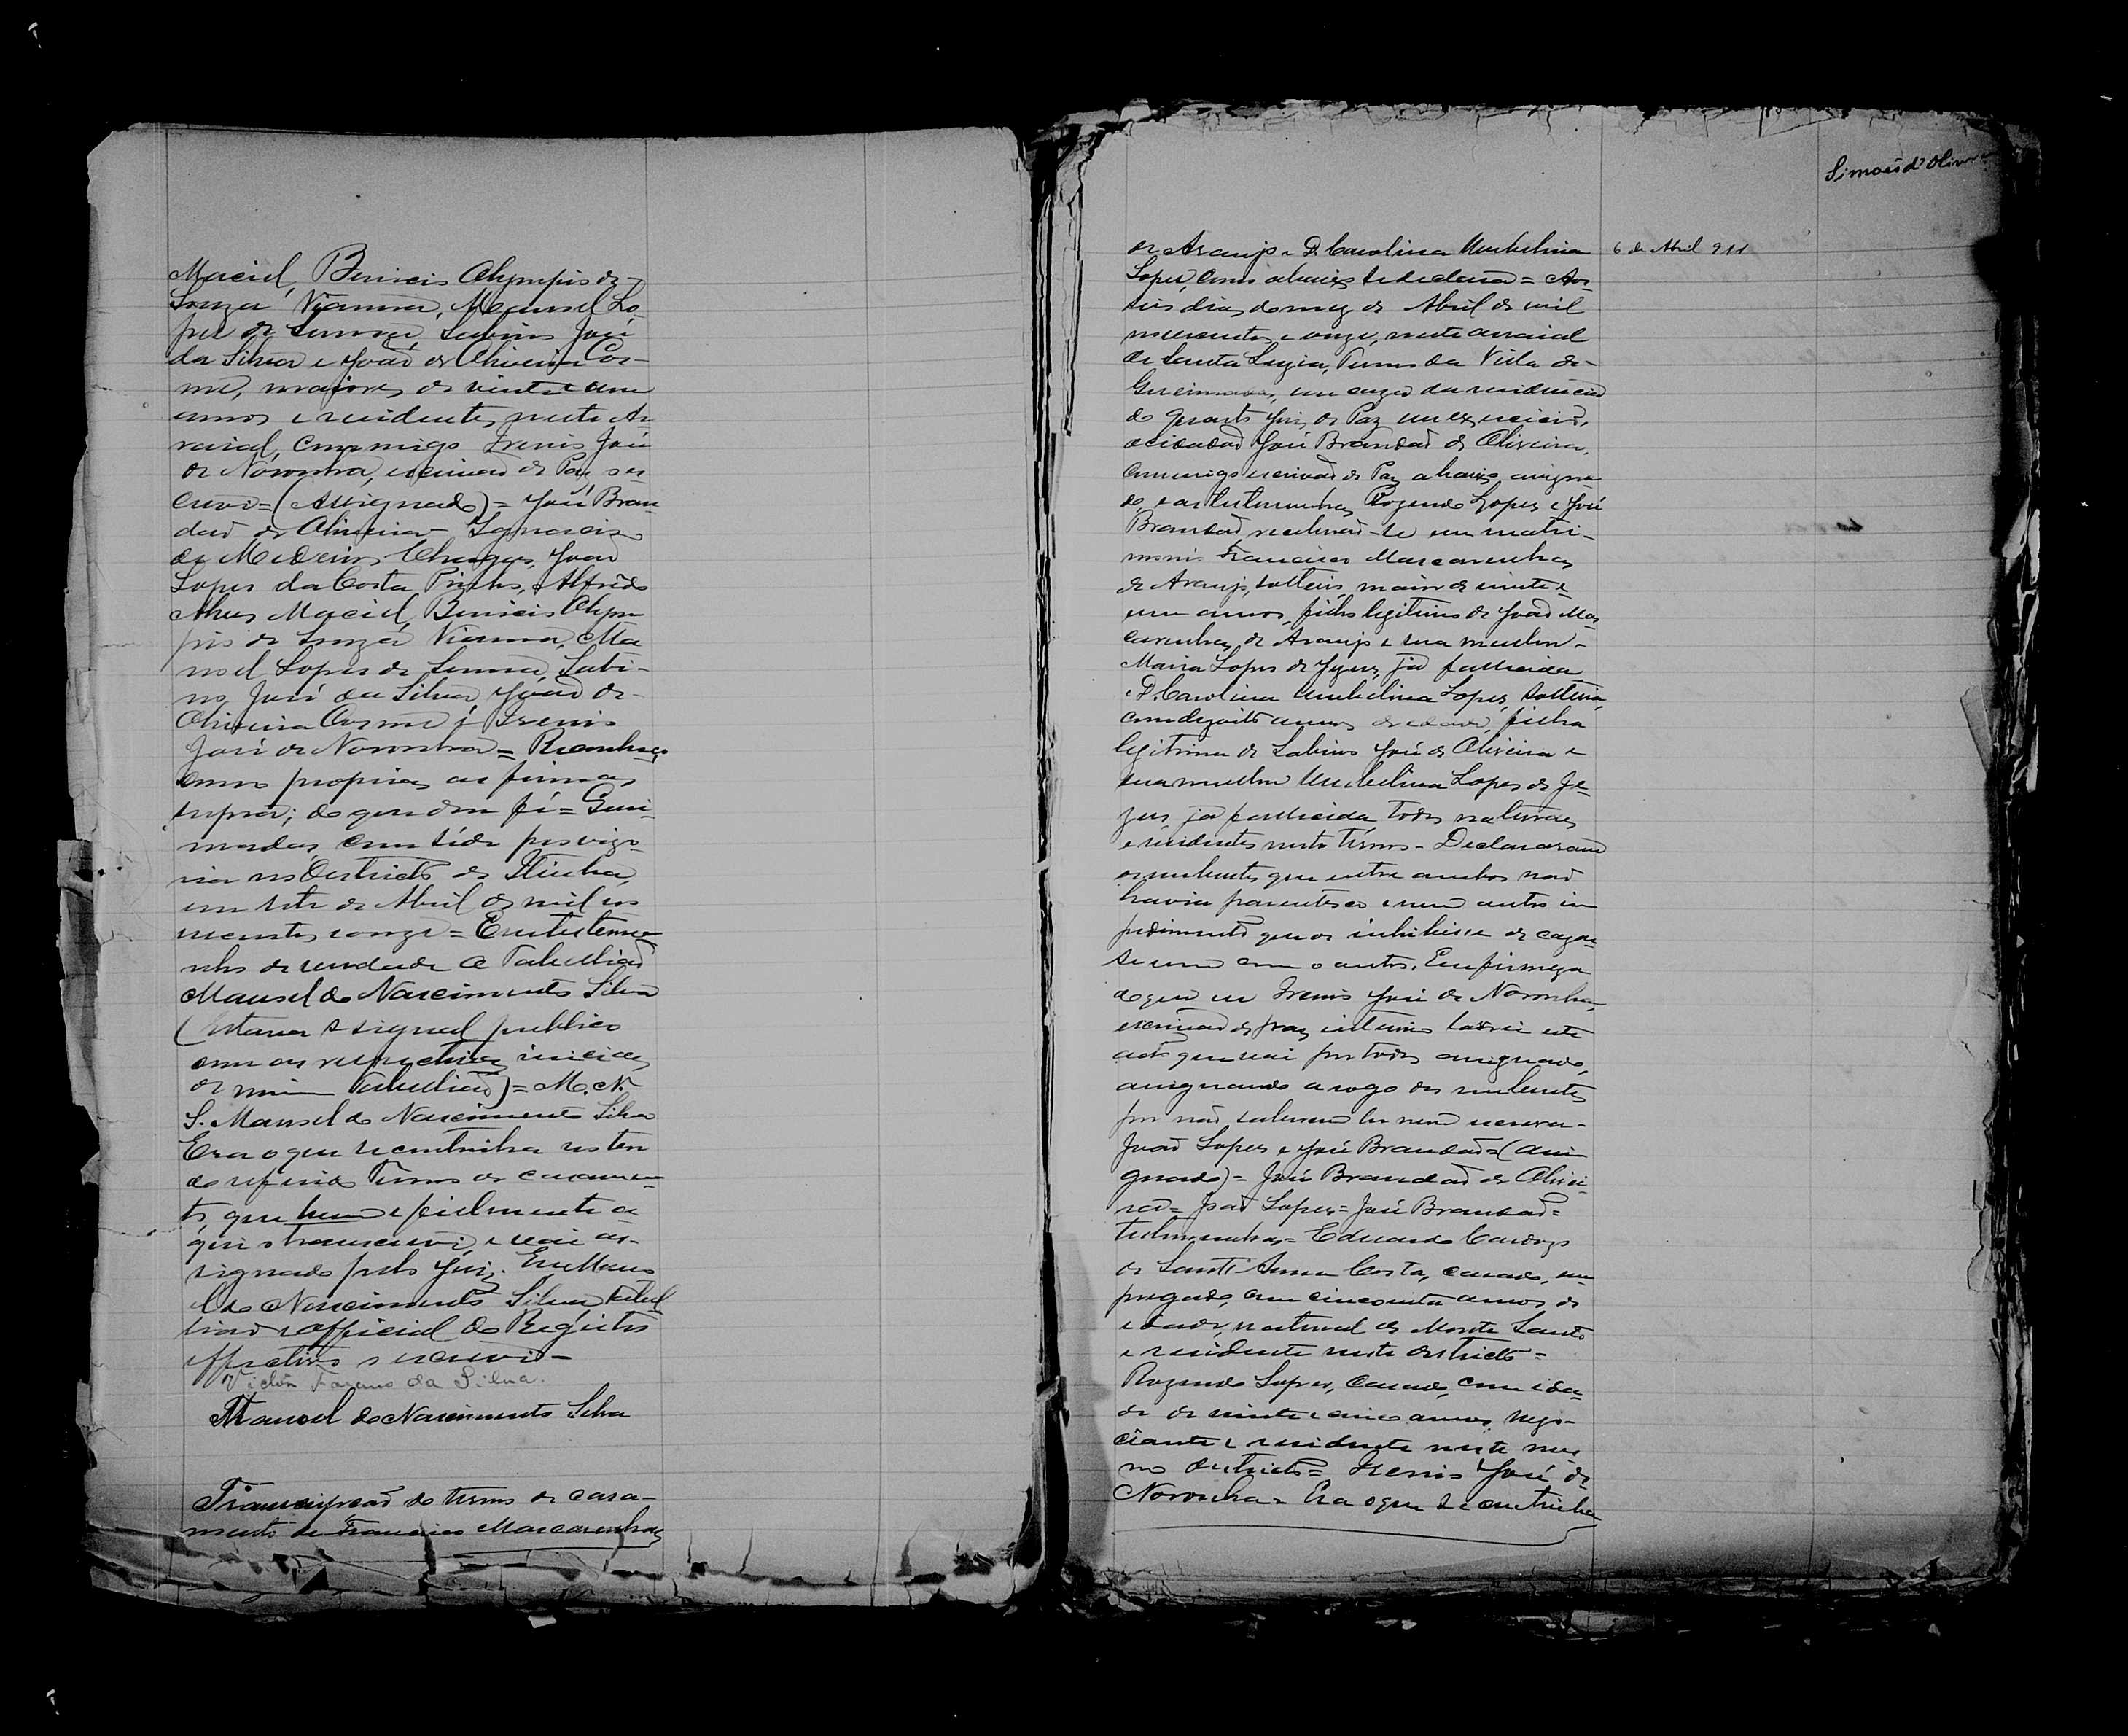 Maciel, Binicio Olympio de
Souza Vianna, Manoel Lo-
pes de Senna, Sabino José
da Silva e João de Oliveira Cos-
me, maiores de vinte e um
annos e residentes neste Ar-
raial, commigo Irenio José
de Noronha, escrivão de Paz, es-
crevi = (Assignado) = José Bran-
dão de Oliveira - Ignacio
de Medeiros Chagas, João
Lopes da Costa Pinho, Alfredo
Alves Maciel, Binicio Olym-
pio de Souza Vianna, Ma-
noel Lopes de Senna, Sabi-
no José da Silva, João de
Oliveira Cosme e Irenio
José de Noronha = Reconheço
como proprias as firmas
supra; do que dou fé =
em sete de Abril de mil no-
vecentos e onze = Em testemu-
nho de verdade O Tabellião
Manoel do Nascimento Silva
(Estava o signal publico
com as respectivas iniciaes
de mim Tabellião) = M. N.
S. Manoel do Nascimento Silva
Era o que se continha no ter-
do referido Termo de casamen-
to, que bem e fielmente a-
qui o transcrevi, e vai as-
signado pelo Juiz. Eu Mano-
el do Nascimento Silva Tabel-
lião e Official do Registro
effectivo o escrevi -
da Silva.
Manoel do Nascimento Silva
Transcripção do termo de casa-
mento de Francisco Mascarenhas
Simões d'Oliveira
de Araujo e D. Carolina Umbelina
6 de Abril 911
Lopes, como abaixo se declara = Aos
seis dias do mez de Abril de mil
novecentos e onze, neste arraial
de Santa Luzia, Termo da Villa de
em caza da residencia
do quarto Juiz de Paz em exercicio,
o cidadão José Brandão de Oliveira,
commigo escrivão de Paz abaixo assigna-
do e as testemunhas Rozendo Lopes e José
Brandão, receberão-se em matri-
monio Francisco Mascarenhas
de Araujo, solteiro, maior de vinte e
um annos, filho legitimo de João Mas-
carenhas de Araujo e sua mulher
Maria Lopes de Jezus, já fallecida
e D. Carolina Umbelina Lopes, solteira,
com dezoito annos de edade, filha
legitima de Sabino José de Oliveira e
sua mulher Umbelina Lopes de Je-
zus já fallecida todos naturaes
e residentes neste termo - Declararam
os nubentes que entre ambos não
havia parentesco e nem outro im-
pedimento que os inhibisse de cazar-
se um com o outro. Em firmeza
do que eu Irenio José de Noronha,
escrivão de paz interino lavrei este
acto que vai por todos assignado,
assignando a rogo dos nubentes
por não saberem ler nem escrever -
João Lopes e José Brandão = (assi-
gnado) = José Brandão de Olivei-
ra = João Lopes = José Brandão =
testemunhas = Eduardo Cardozo
de Sant'Anna Costa, casado, em-
pregado, com cincoenta annos de
edade, natural de Monte Santo
e residente neste districto =
Rozendo Lopes, casado, com ida-
de de vinte e cinco annos, nego-
ciante e residente neste mes-
mo districto = Irenio José de
Noronha = Era o que se continha